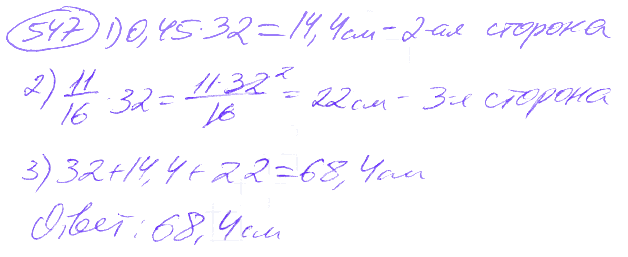 547 1) 0,45·32=14,4см – 2-ая сторона
2) 11/16 · 32 = 11·32²/16 = 22см – 3-я сторона
3) 32+14,4+22=68,4см
Ответ: 68,4см